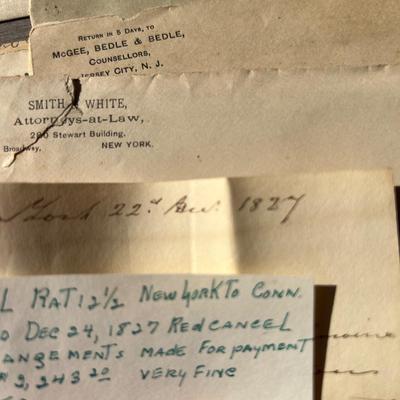 RETURN IN 5 DAYS, TO
MCGEE, BEDLE & BEDLE,
COUNSELLORS,
JERSEY CITY, N. J.
SMITH & WHITE,
Attorneys-at-Law,
280 Stewart Building,
Broadway, NEW YORK.
York 22d Dec. 1827
L RAT 12 1/2 NEW YORK TO CONN.
O DEC 24, 1827 RED CANCEL
ANGEMENTS MADE FOR PAYMENT
$2,243 20 VERY FINE